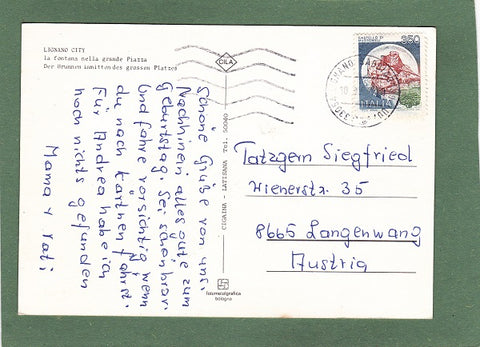 LIGNANO CITY
la fontana nella grande Piazza
Der Brunnen inmitten des grossen Platzes
CILA
350
ITALIA
Schöne Grüße von uns.
Nachhinein alles gute zum
Geburtstag. Sei schön brav.
Und fahre vorsichtig wenn
du nach Kärnten fährst.
Für Andrea habe ich
noch nichts gefunden
Mama + Vati
CIGAINA - LATISANA Tel. 50060
fotometalgrafica
bologna
Tatzgern Siegfried
Wienerstr. 35
8665 Langenwang
Austria